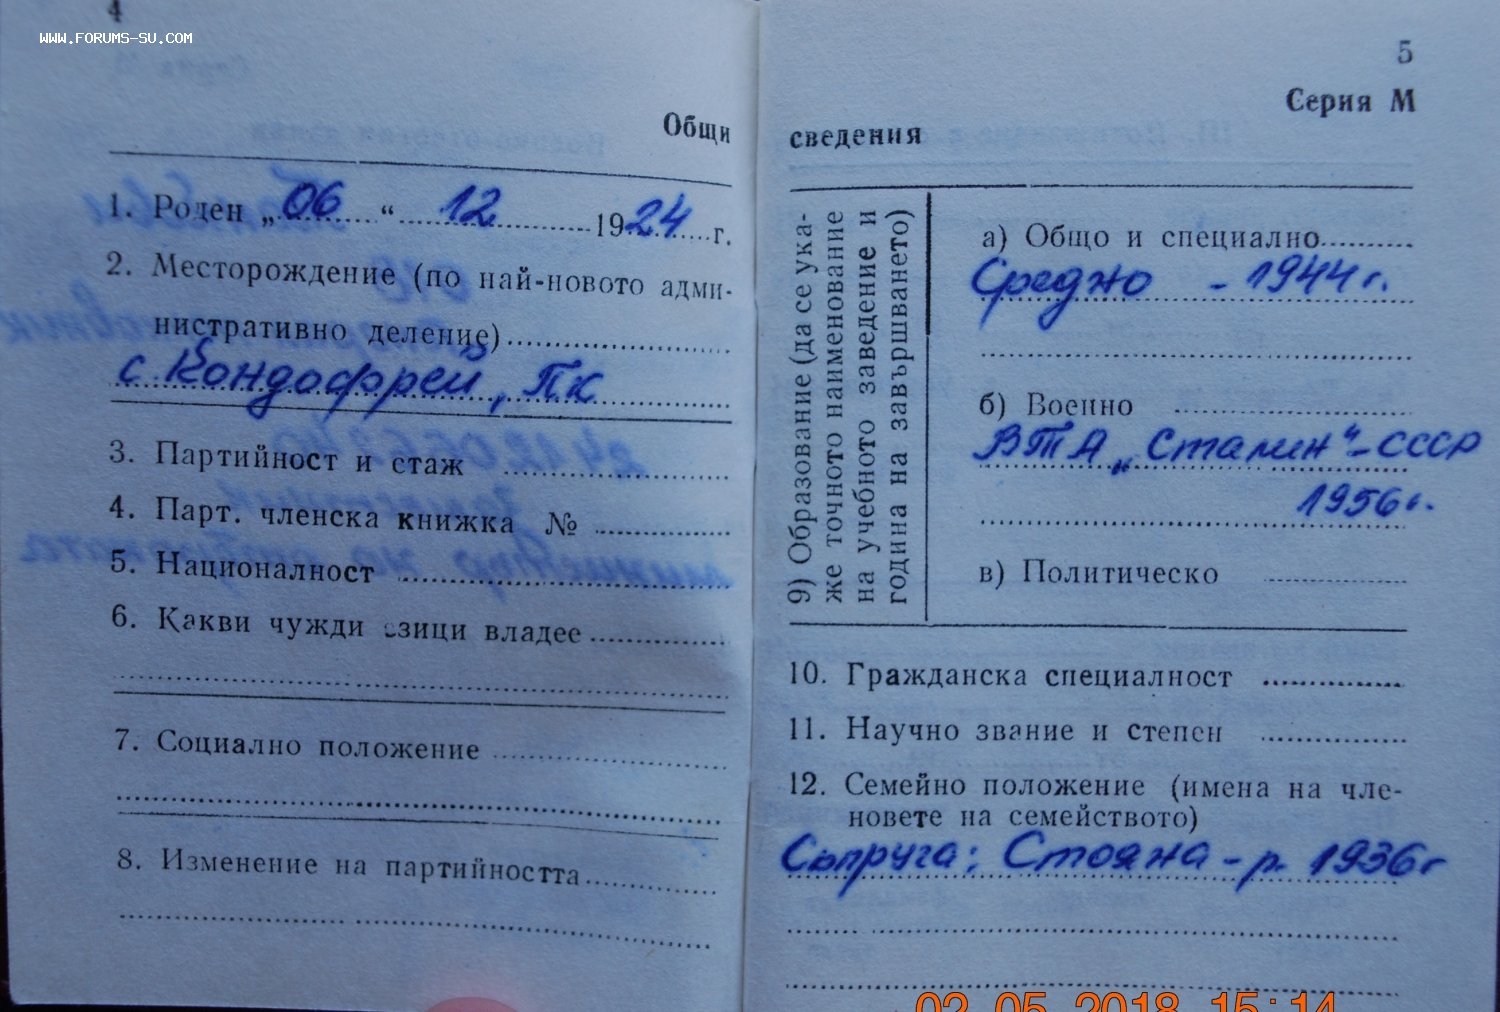 4
WWW.FORUMS-SU.COM
Общи
1. Роден „06“ 12 1924 г.
2. Месторождение (по най-новото адми-
нистративно деление)
с. Кондофрей, ПК
3. Партийност и стаж
4. Парт. членска книжка №
5. Националност
6. Какви чужди езици владее
7. Социално положение
8. Изменение на партийността
5
Серия М
сведения
9) Образование (да се ука-
же точното наименование
на учебното заведение и
година на завършването)
а) Общо и специално
Средно - 1944 г.
б) Военно
ВТА „Сталин“ - СССР
1956 г.
в) Политическо
10. Гражданска специалност
11. Научно звание и степен
12. Семейно положение (имена на чле-
новете на семейството)
Съпруга: Стояна - р. 1936 г
02 05 2018 15:14